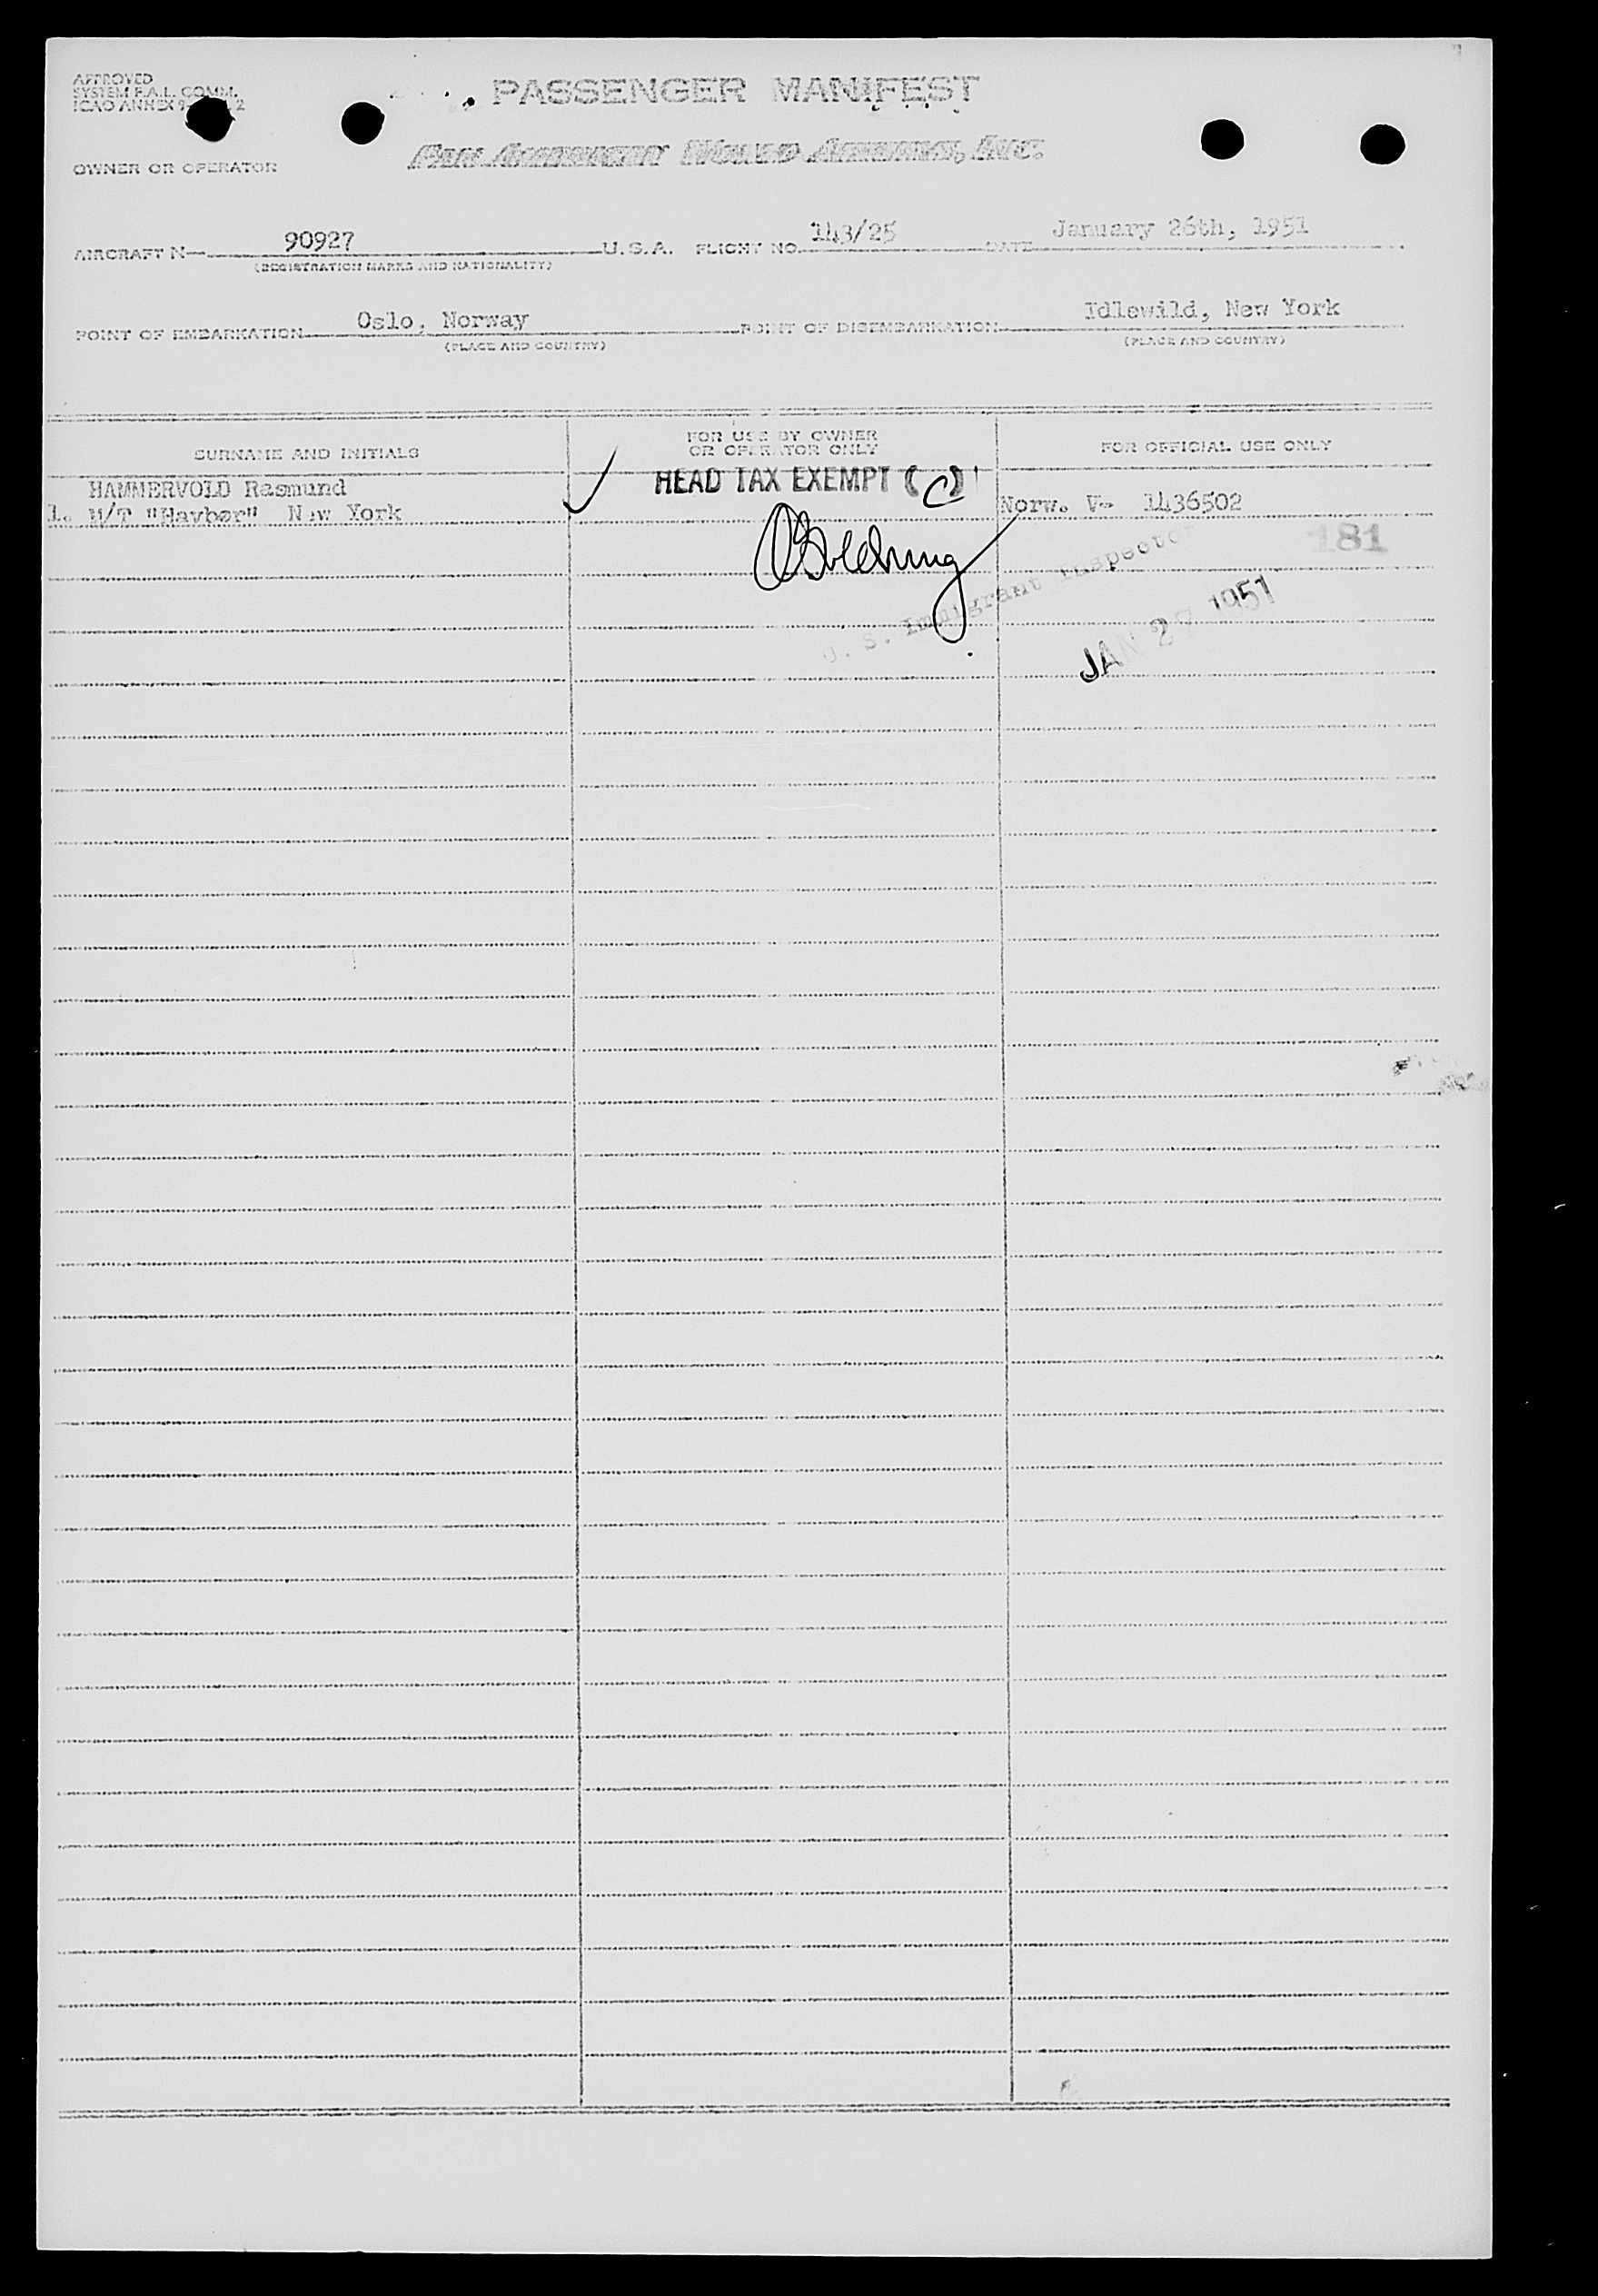 APPROVED
SYSTEM F.A.L. COMM.
ICAO ANNEX 9 2
PASSENGER MANIFEST
OWNER OR OPERATOR
PAN AMERICAN WORLD AIRWAYS, INC.
AIRCRAFT N— 90927 U.S.A. FLIGHT NO. 143/25 DATE January 26th, 1951
(REGISTRATION MARKS AND NATIONALITY)
POINT OF EMBARKATION Oslo, Norway POINT OF DISEMBARKATION Idlewild, New York
(PLACE AND COUNTRY) (PLACE AND COUNTRY)
SURNAME AND INITIALS FOR USE BY OWNER OR OPERATOR ONLY FOR OFFICIAL USE ONLY
HAMMERVOLD Rasmund HEAD TAX EXEMPT (C)
1. M/T "Havbør" New York Norw. V- 1436502
181
U. S. Immigrant Inspector
JAN 27 1951